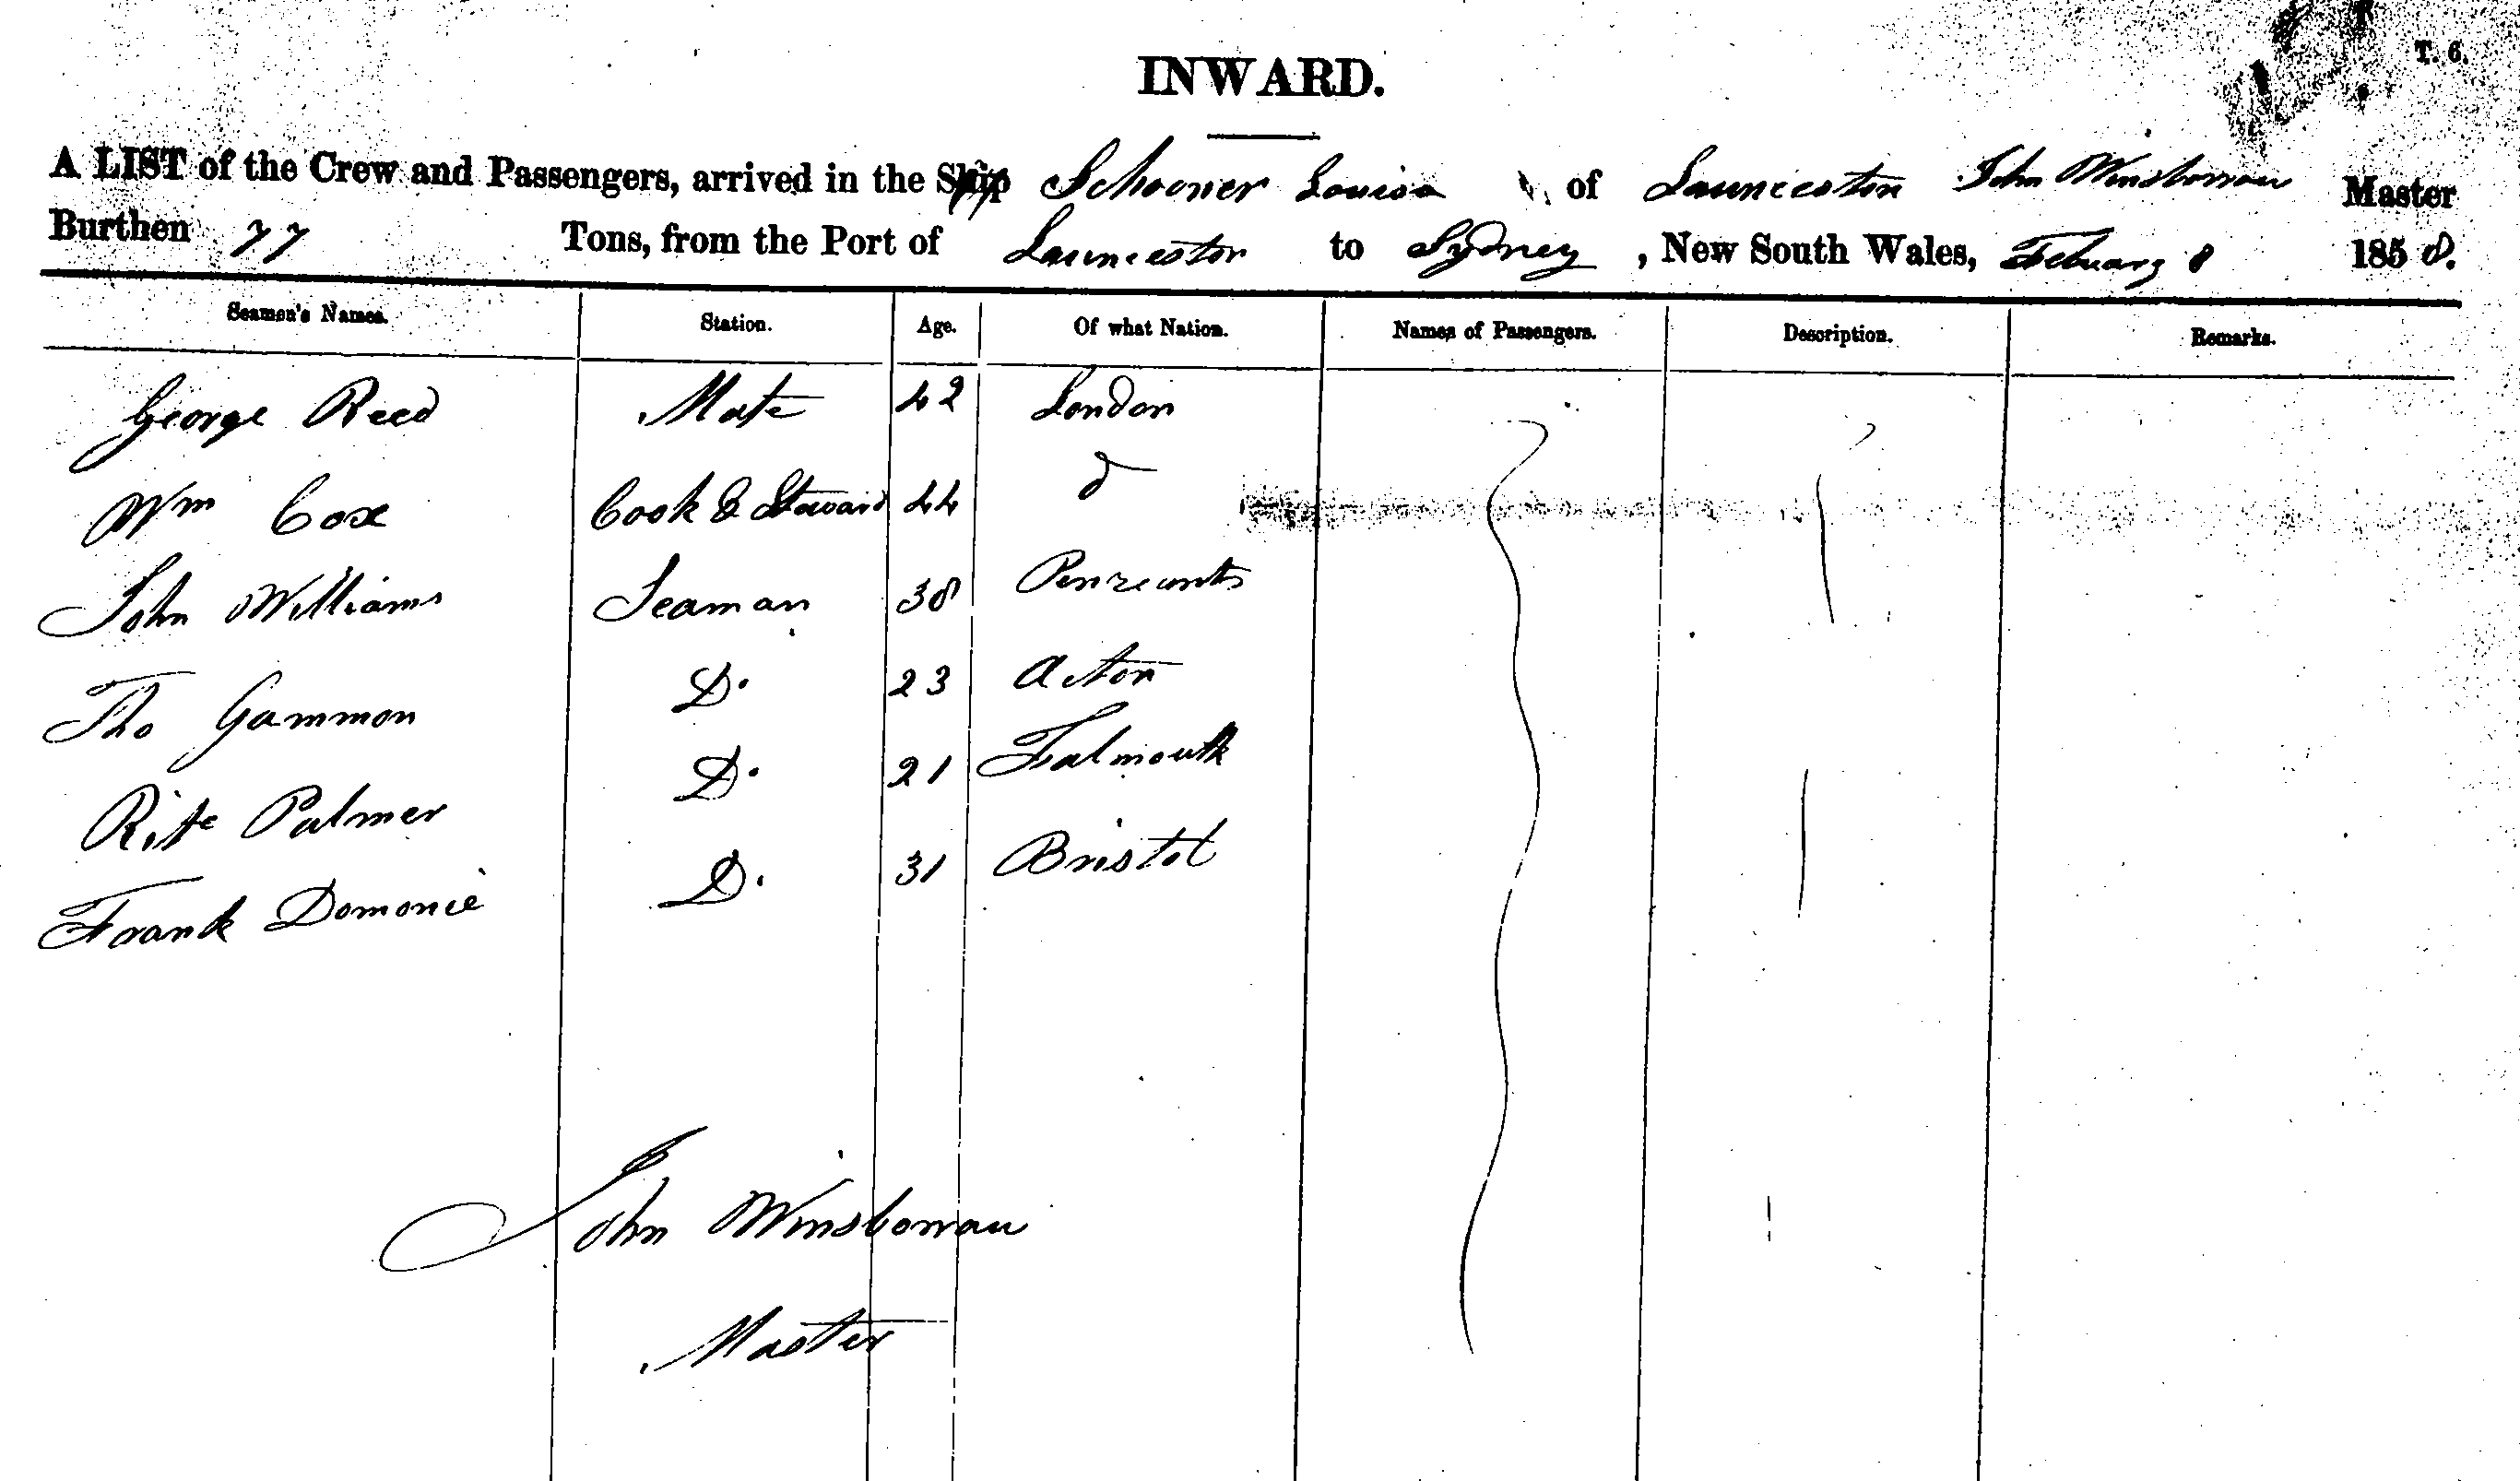 T. 6.
INWARD.
A LIST of the Crew and Passengers, arrived in the Ship Schooner Louisa of Launceston John Winsborrow Master
Burthen 77 Tons, from the Port of Launceston to Sydney, New South Wales, Febuary 8 1858.
Seamen's Names. Station. Age. Of what Nation. Names of Passengers. Description. Remarks.
George Reed Mate 42 London
Wm Cox Cook & Steward 44 d
John Williams Seaman 38 Penzants
Tho Gammon D. 23 Acton
Palmer D. 21 Falmouth
Frank Domonie D. 31 Bristol
John Winsborrow
Master